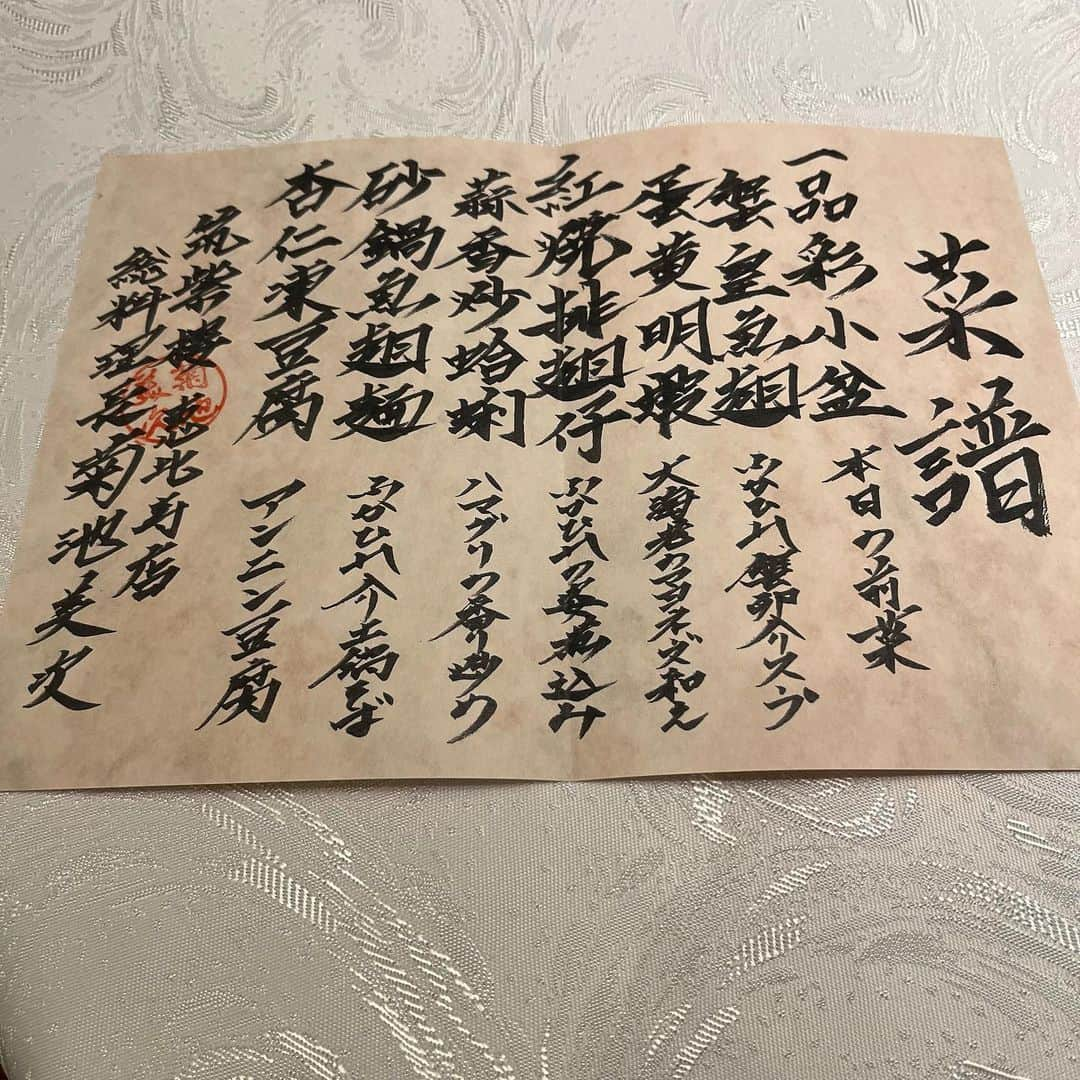 菜譜
一品彩小盆 本日の前菜
蟹皇魚翅 ふかひれ蟹卵入りスープ
蛋黄明蝦 大海老のマヨネーズ和え
紅焼排翅仔 ふかひれの姿煮込み
蒜香炒蛤蜊 ハマグリの香り炒め
砂鍋魚翅麺 ふかひれ入り土鍋そば
杏仁凍豆腐 アンニン豆腐
筑紫樓 恵比寿店
総料理長 菊池